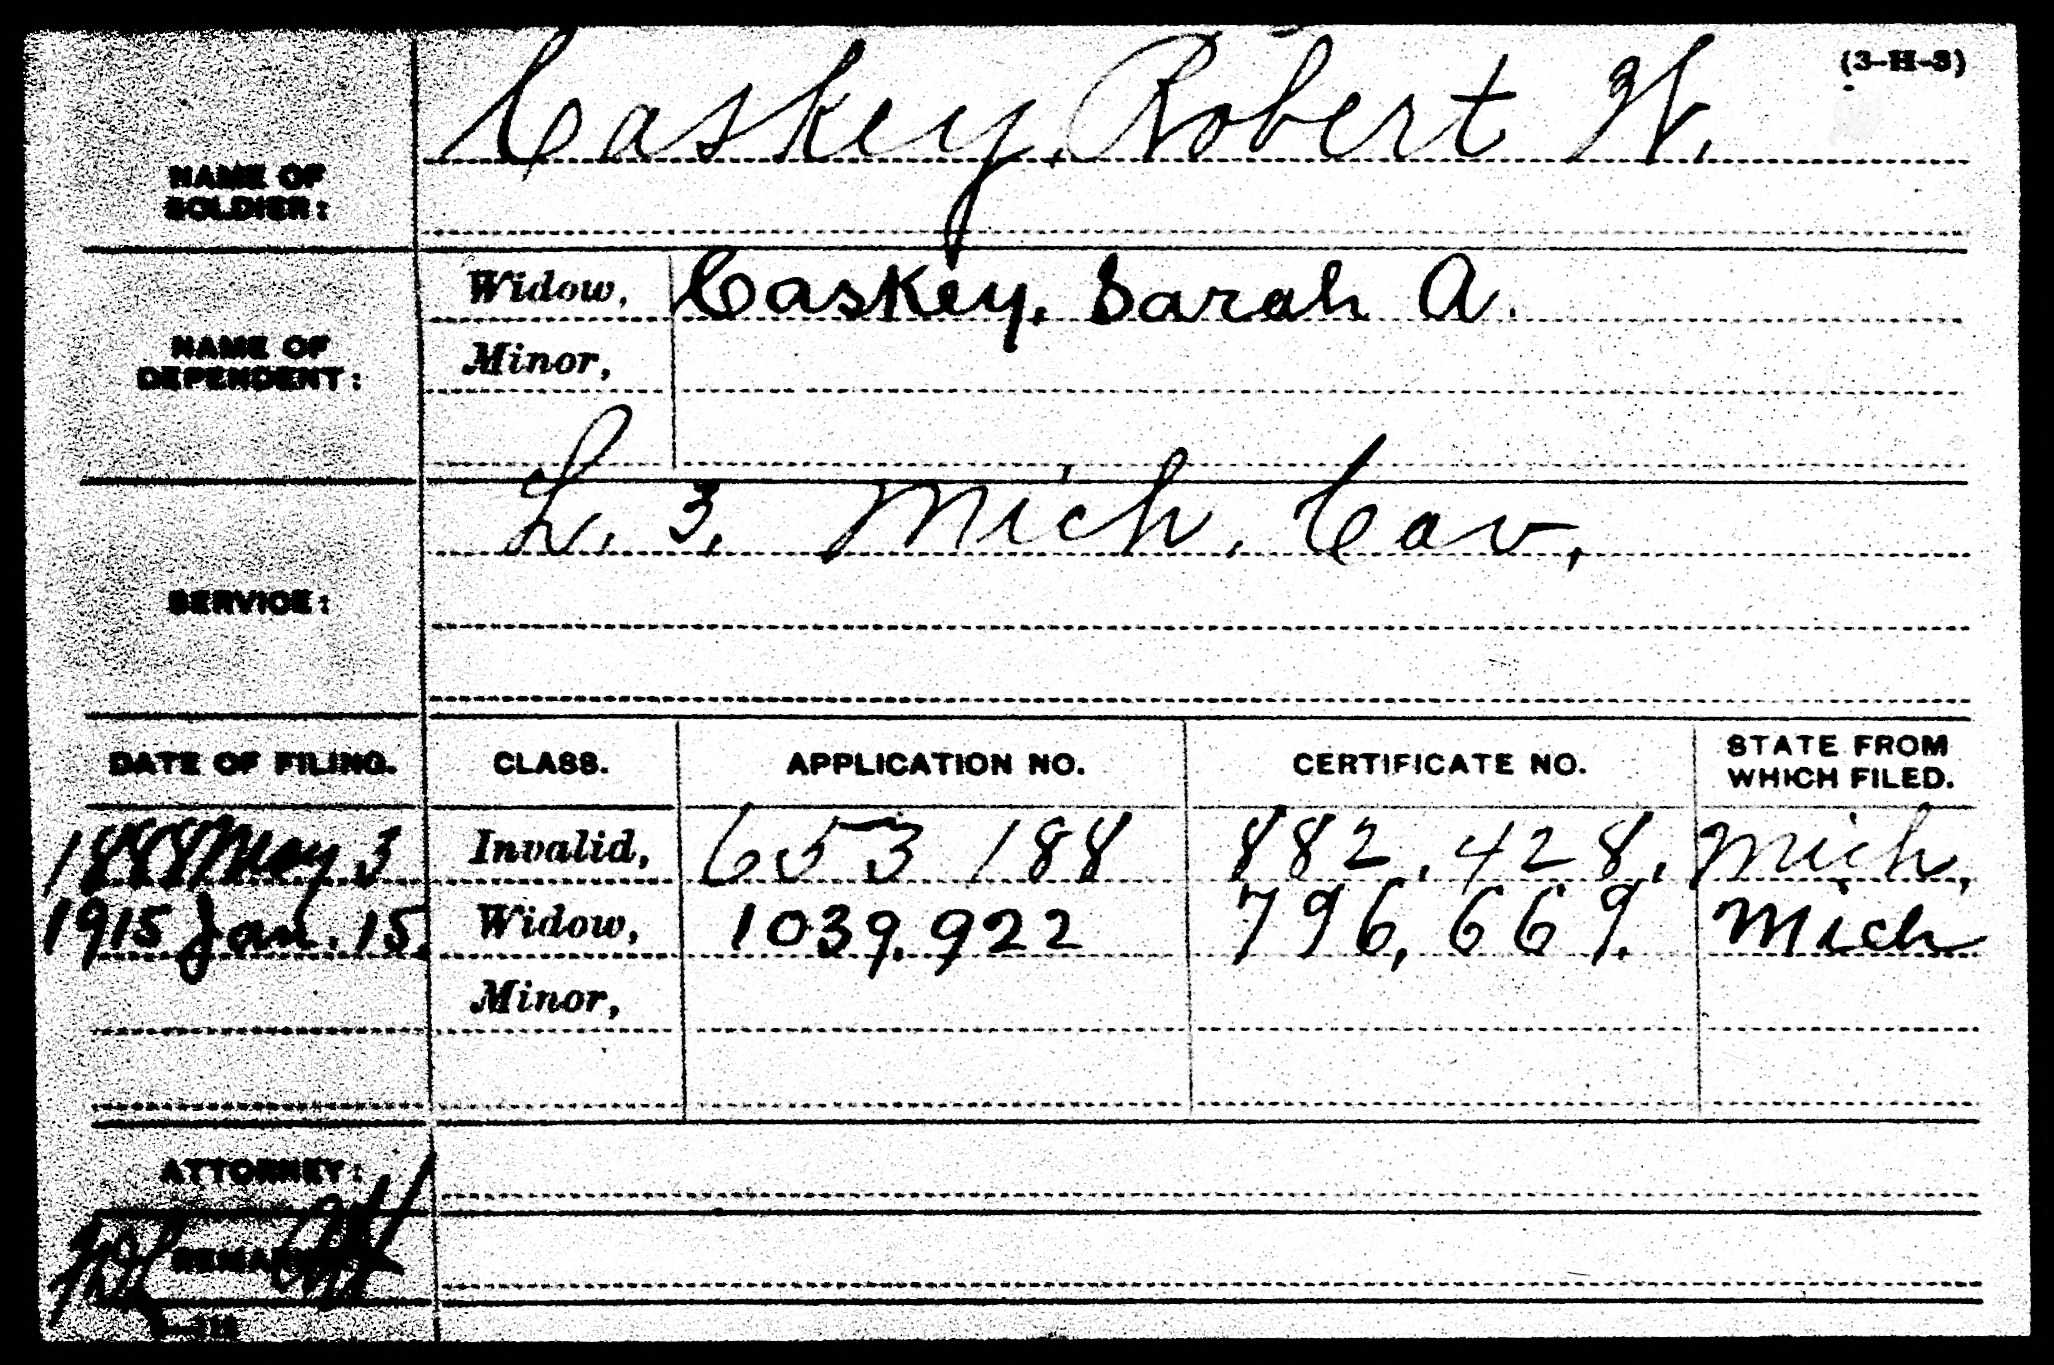 (3-H-3)
NAME OF SOLDIER: Caskey, Robert W.
NAME OF DEPENDENT:
Widow, Caskey, Sarah A.
Minor,
SERVICE: L. 3, Mich. Cav,
DATE OF FILING. CLASS. APPLICATION NO. CERTIFICATE NO. STATE FROM WHICH FILED.
1888 May 3 Invalid, 653 188 882,428, Mich,
1915 Jan. 15. Widow, 1039.922 796,669. Mich
Minor,
ATTORNEY: